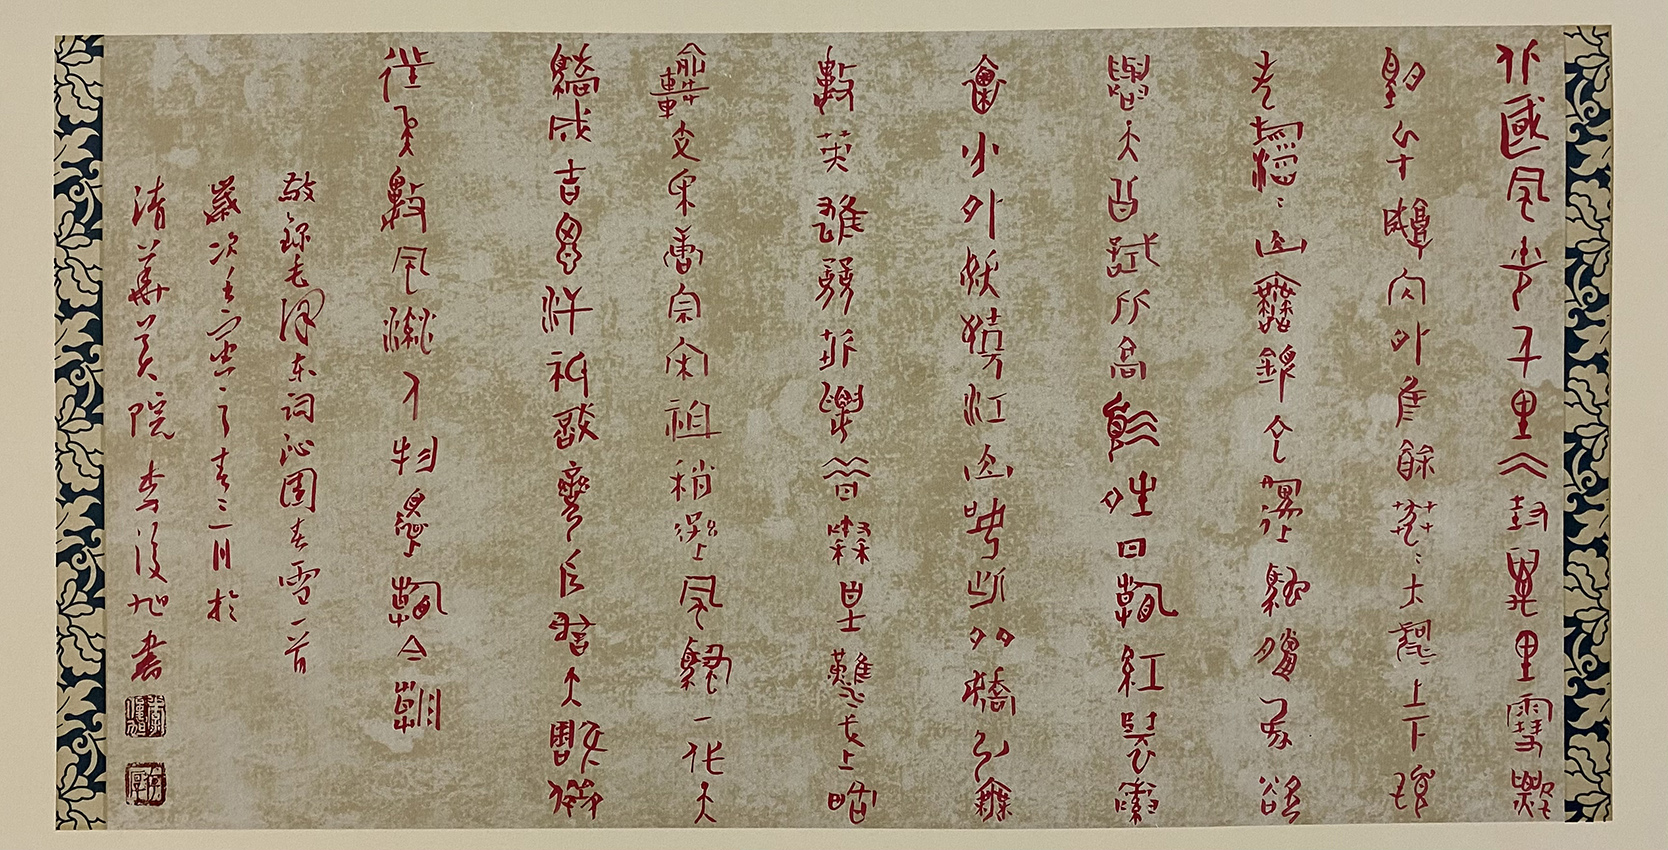 北國風光千里冰封萬里雪飄
望長城內外惟餘莽莽大河上下頓
失滔滔山舞銀蛇原馳蠟象欲
與天公試比高須晴日看紅裝素
裹分外妖嬈江山如此多嬌引無
數英雄競折腰惜秦皇漢武略
輸文采唐宗宋祖稍遜風騷一代天
驕成吉思汗祇識彎弓射大雕俱
往矣數風流人物還看今朝
敬錄毛澤東詞沁園春雪一首
歲次壬寅之春三月於
清華美院李書